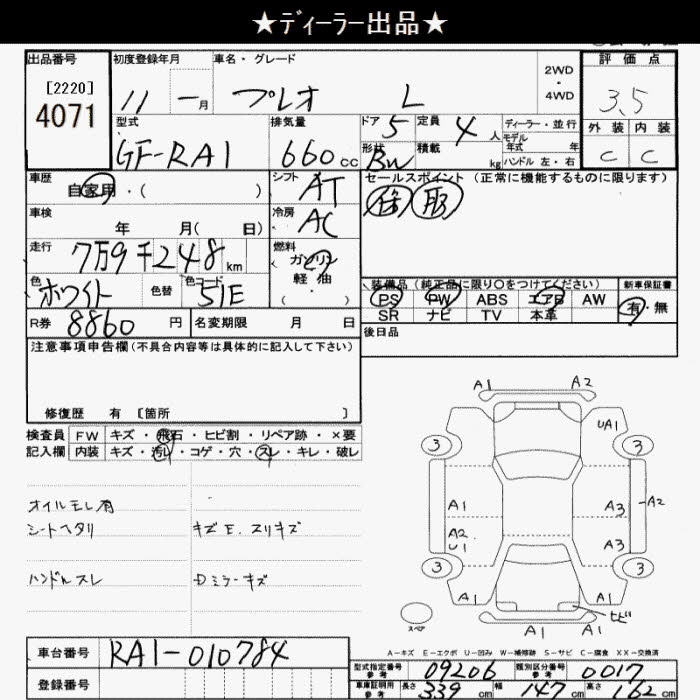 ★ディーラー出品★
出品番号
[2220]
4071
初度登録年月
11 - 月
車名・グレード
プレオ L
2WD
・
4WD
評価点
3.5
外装 内装
C C
型式
GF-RA1
排気量
660 cc
ドア 5
形状 BW
定員 4 人
積載 kg
ディーラー・並行
モデル
年式 年
ハンドル 左・右
車歴
自家用・( )
シフト AT
セールスポイント(正常に機能するものに限ります)
車検
年 月( 日)
冷房 AC
走行
7万9千248 km
燃料
ガソリン
軽油
( ・ )
色
ホワイト
色替
色コード
51E
装備品(純正品に限り○をつけてください)
新車保証書
PS PW ABS エアB AW
SR ナビ TV 本革
有・無
R券 8860 円
名変期限 月 日
後日品
注意事項申告欄(不具合内容等は具体的に記入して下さい)
修復歴 有 [箇所 ]
検査員 FW キズ・飛石・ヒビ割・リペア跡・×要
記入欄 内装 キズ・汚れ・コゲ・穴・スレ・キレ・破レ
オイルモレ有
シートヘタリ
キズE.スリキズ
ハンドルスレ
Dミラーキズ
A1 A2
UA1
3 3
A1 A3 A2
A2
U1 A3
3 3
A1 A1
ヒビ
A1 A1
スペア
A-キズ E-エクボ U-凹み W-補修跡 S-サビ C-腐食 XX-交換済
車台番号 RA1-010784
登録番号
型式指定番号
参考
09206
類別区分番号
参考
0017
車庫証明用
参考
長さ 339 cm 幅 147 cm 高さ 62 cm